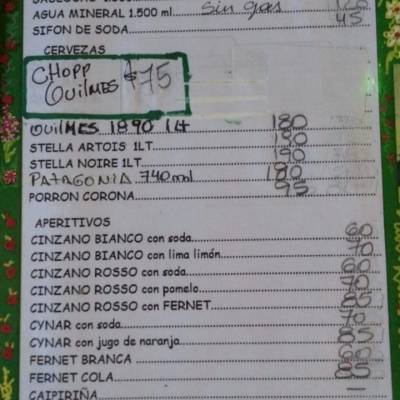 AGUA MINERAL 1.500 ml sin gas
SIFON DE SODA 45
CERVEZAS
CHOPP $75
QUILMES
QUILMES 1890 1Lt 180
STELLA ARTOIS 1LT. 180
STELLA NOIRE 1LT. 190
PATAGONIA 740ml 180
PORRON CORONA 95
APERITIVOS
CINZANO BIANCO con soda 60
CINZANO BIANCO con lima limón 70
CINZANO ROSSO con soda
CINZANO ROSSO con pomelo 70
CINZANO ROSSO con FERNET
CYNAR con soda 70
CYNAR con jugo de naranja 85
FERNET BRANCA
FERNET COLA 85
CAIPIRIÑA